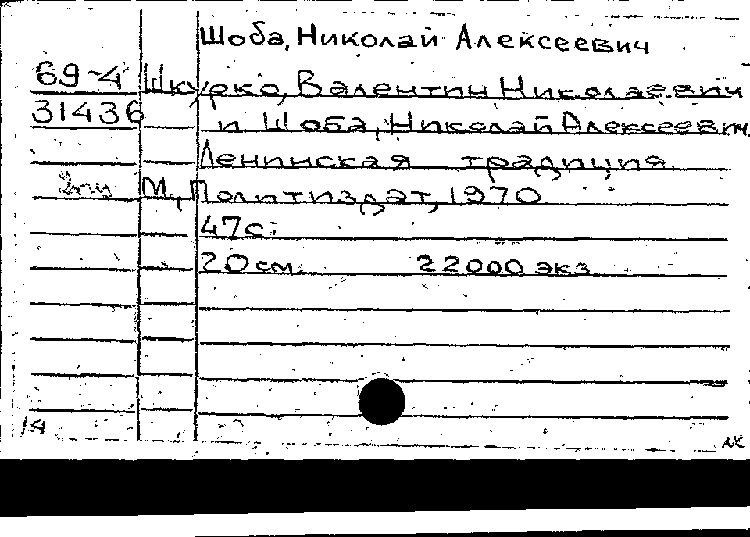 Шоба, Николай Алексеевич
69-4 Шкурко, Валентин Николаевич
31436 и Шоба, Николай Алексеевич.
Ленинская традиция.
М., Политиздат, 1970.
47с.
20 см. 22000 экз.
14